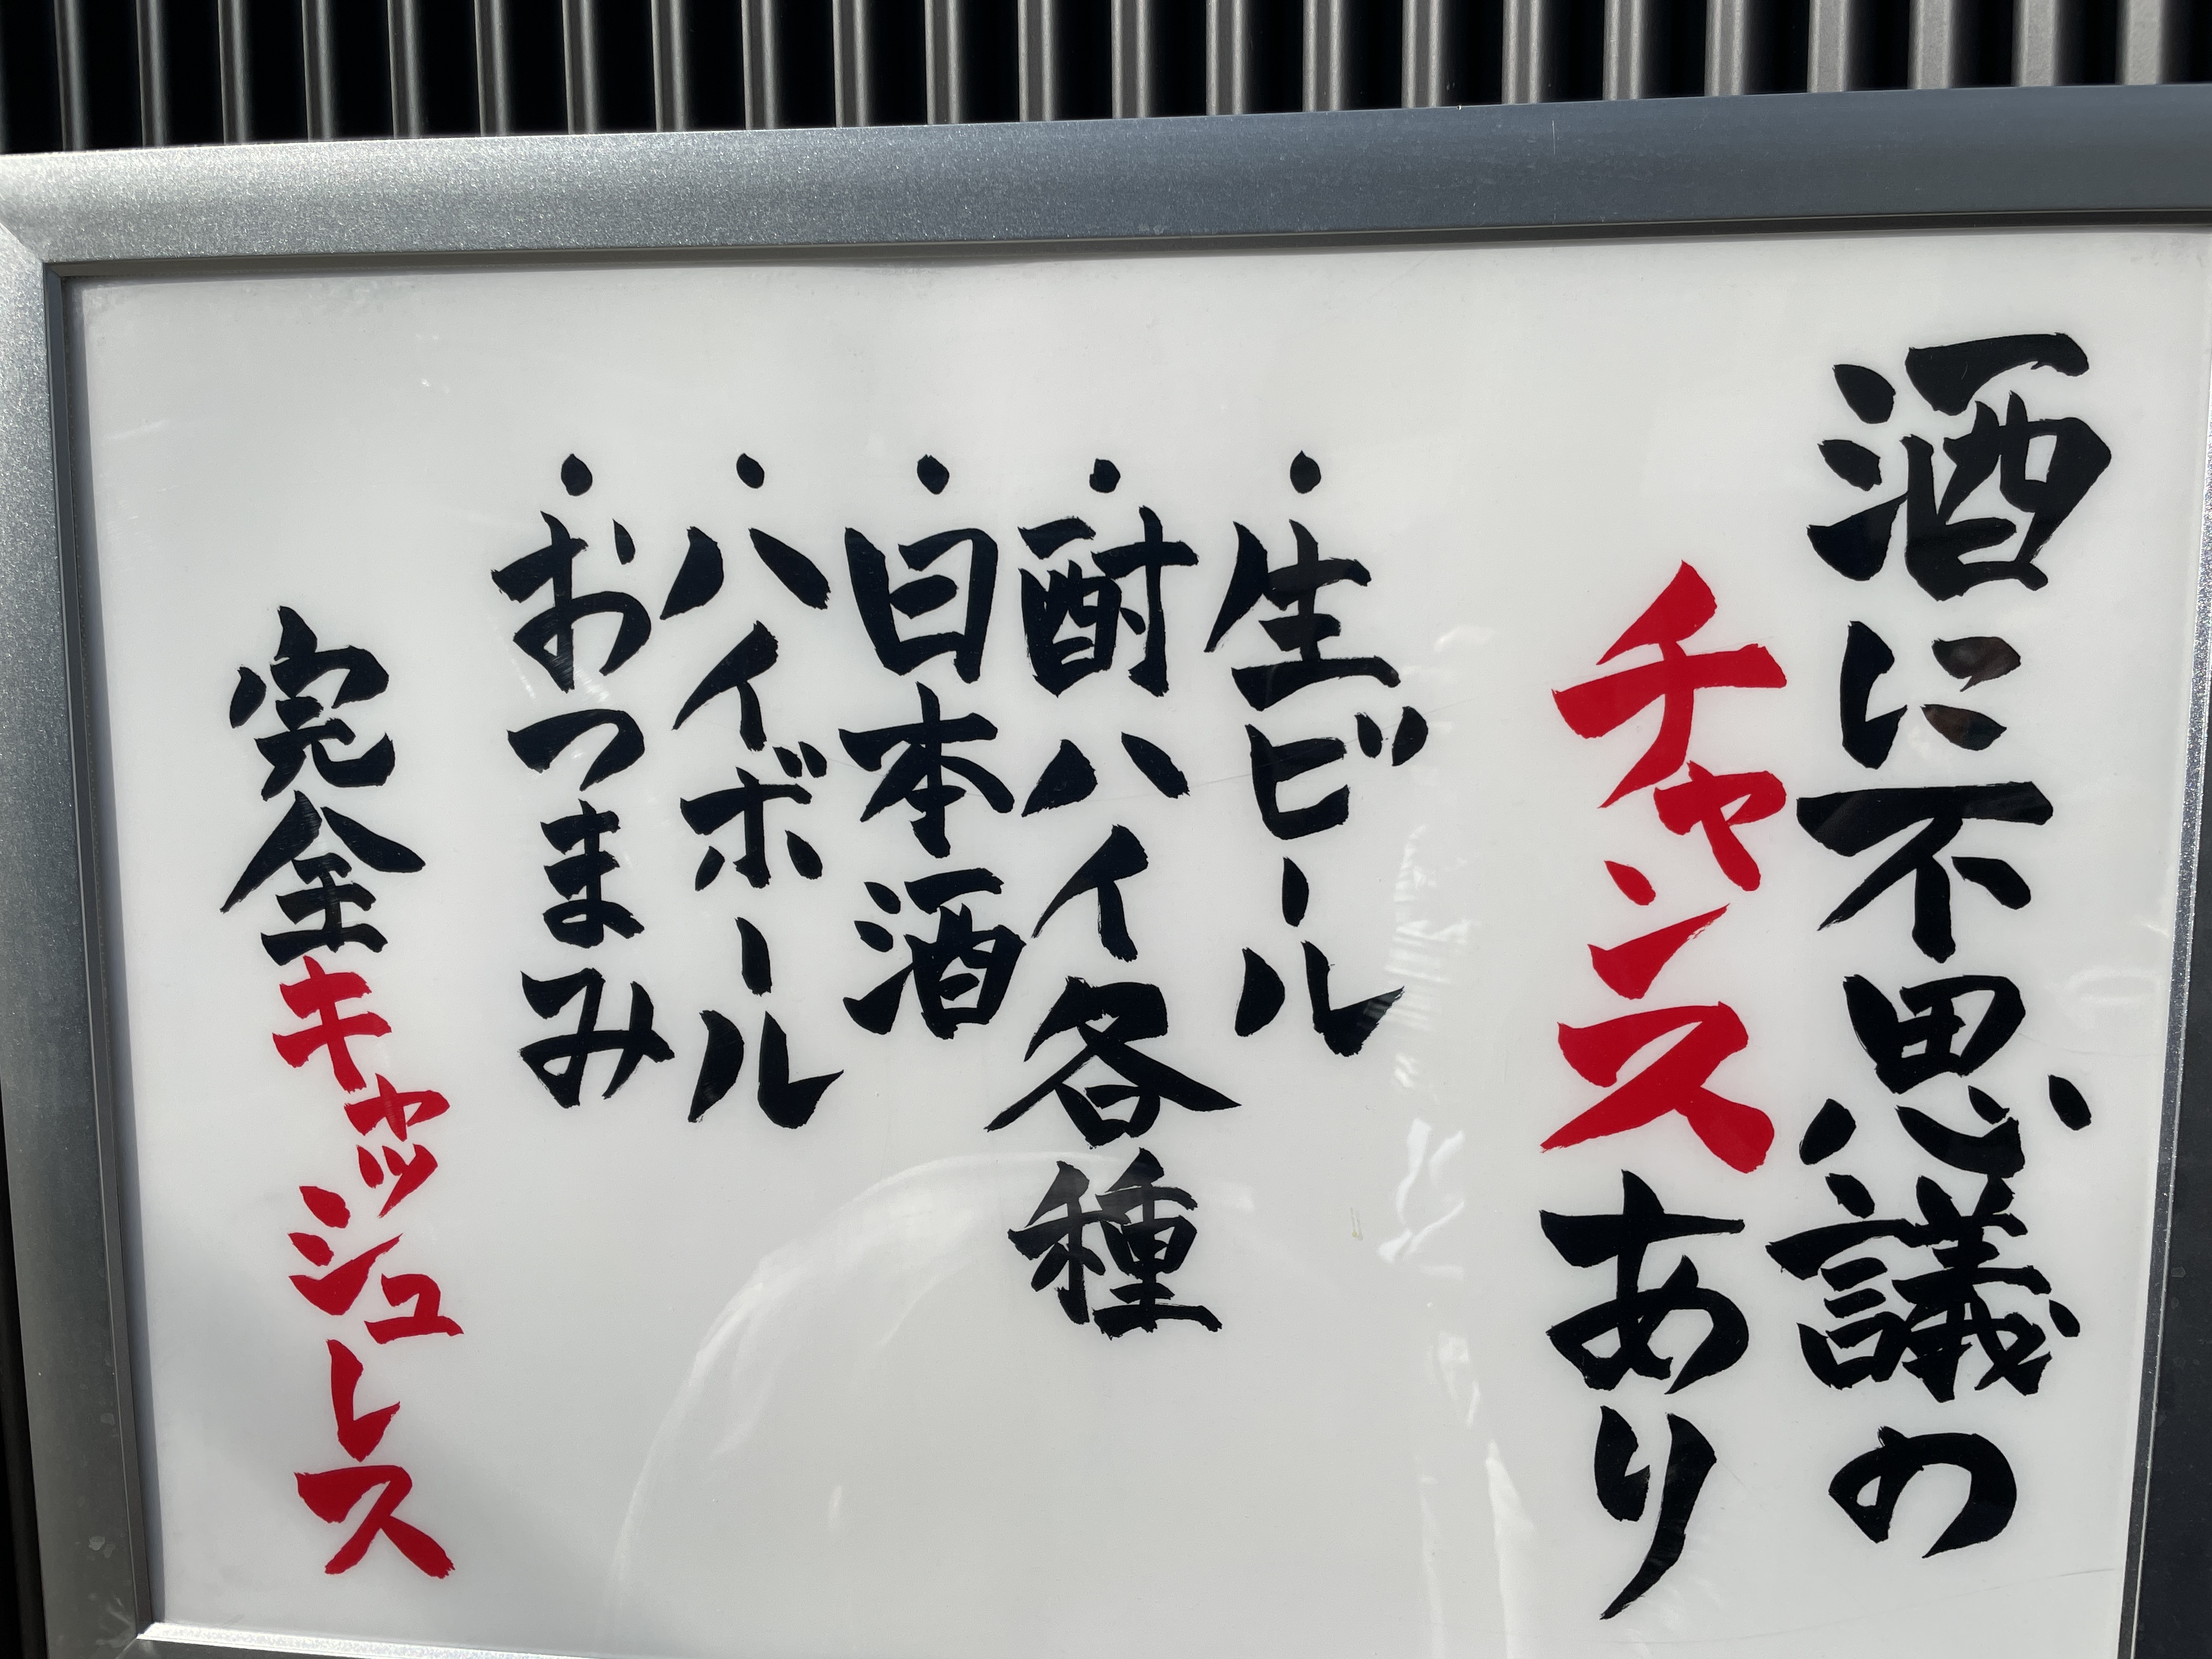 酒に不思議の
チャンスあり
・生ビール
・酎ハイ各種
・日本酒
・ハイボール
・おつまみ
完全キャッシュレス